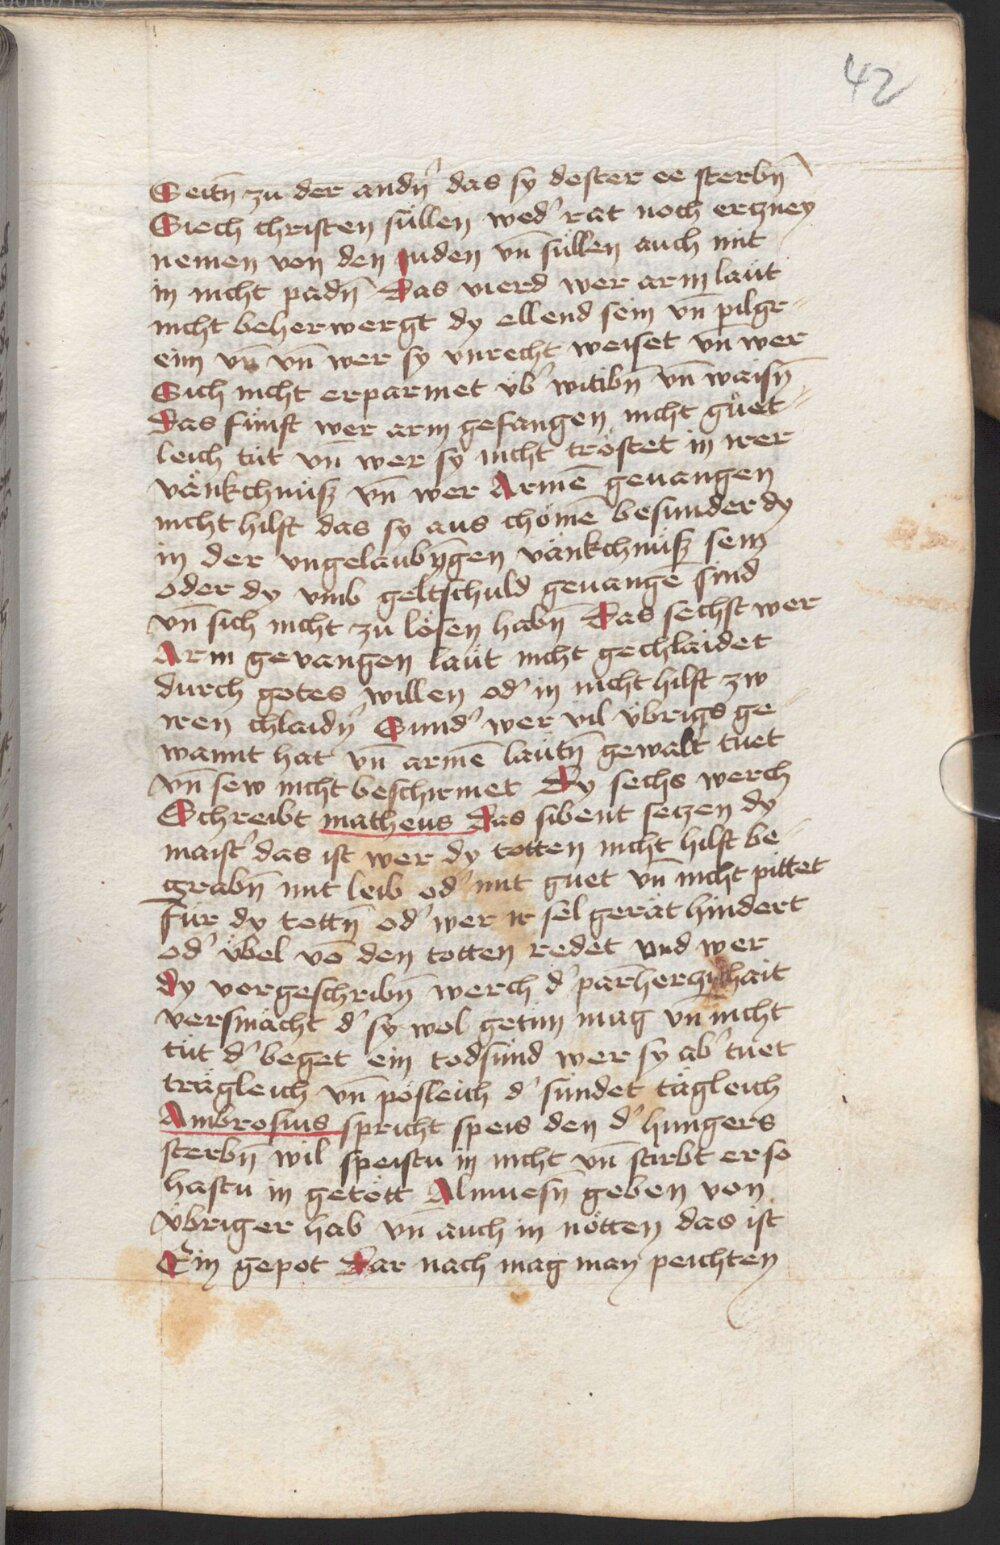 42
Seitn̄ zu der andn̄' das sy dester ee sterbn̄
Siech christen süllen wed' rat noch erczney
nemen von den juden vn̄ süllen auch mit
in nicht padn̄ Das vierd wer arm laüt
nicht beherwergt dy ellend sein vn̄ pilgr-
eim vn̄ vn̄ wer sy vnrecht weiset vn̄ wer
Sich nicht erparmet üb' witibn̄ vn̄ waisn̄
Das fünft wer arm gefangen nicht güet-
leich tüt vn̄ wer sy nicht tröstet in irer
vänkchnüß vn̄ wer Armē geuangen
nicht hilft das sy aus chömē besunder dy
in der vngelaubign̄gen vänkchnüß sein
oder dy vmb geltschuld geuangē sind
vn̄ sich nicht zu lösen habn̄ Das sechst wer
Arm gevangen laüt nicht gechlaidet
durch gotes willen od' in nicht hilft zw
iren chlaidn̄' Sund' wer vil übrigs ge-
wannt hat vn̄ armē laütn̄ gewalt tuet
vn̄ sew nicht beschirmet Dy sechs werch
Schreibt matheus Das sibent seczen dy
maist' das ist wer dy totten nicht hilft be-
grabn̄ mit leib od' mit guet vn̄ nicht pittet
für dy tottn̄ od' wer ir sel gerät hindert
od' übel vō den totten redet vnd wer
dy vorgeschribn̄ werch d' parmherczichait
versmächt d' sy wol getun mag vn̄ nicht
tüt d' beget ein todsünd wer sy ab' tuet
trägleich vn̄ pösleich d' sündet tägleich
Ambrosius spricht speis den d' hungers
sterbn̄ wil speistu in nicht vn̄ stirbt er so
hastu in getött Almuesn̄ geben von
übriger hab vn̄ auch in nötten das ist
Ein gepot Dar nach mag man peichten